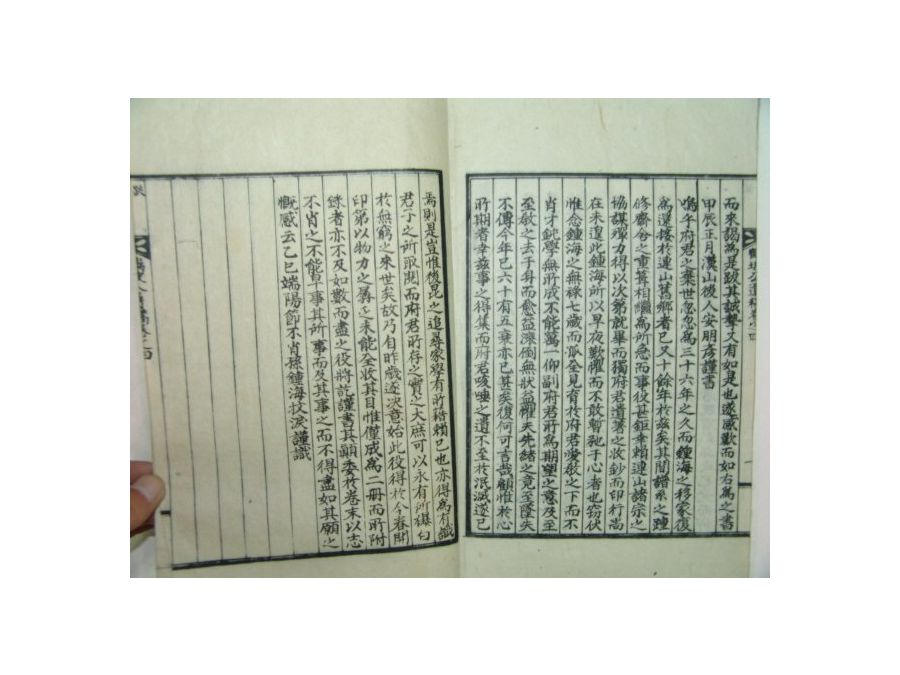 而來謁爲是跋其誠摯又有如是也遂感歎而如右爲之書
甲辰正月漢山後人安朋彦謹書
嗚乎府君之棄世忽忽爲三十六年之久而鍾海之移家復
爲還接於連山舊鄕者已又十餘年於玆矣其間譜系之踵
修齋舍之重葺相繼爲所急而事役甚鉅幸賴連山諸宗之
協謀殫力得以次第就畢而獨府君遺著之收鈔而印行尙
在未遑此鍾海所以早夜勤懼而不敢暫弛于心者也窃伏
惟念鍾海之無祿七歲而孤全見育於府君愛敎之下而不
肖才鈍學無所成不能萬一仰副府君所爲期望之意及至
敎之去于身而愈益濩倒無狀益懼夫先緖之竟至墜失
不傳今年已六十有五衰亦已甚矣復何可言哉顧惟於心
所期者幸玆事之得集而府君唆唾之遺不至於泯滅遂已
焉則是豈惟後昆之追尋家學有所稽賴已也亦得爲有識
君子之所取閱而府君所存之實之大庶可以永有所
於無窮之來世矣故乃自昨歲遂決意始此役得於今春開
印第以物力之未能全收其目惟僅成爲二冊而所附
錄者亦不及如數而盡之役將訖謹書其顚委於卷末以志
不肖之不能早事其所事而及其事之而不得盡如其願之
慨感云乙巳端陽節不肖孫鍾海抆淚謹識
跋